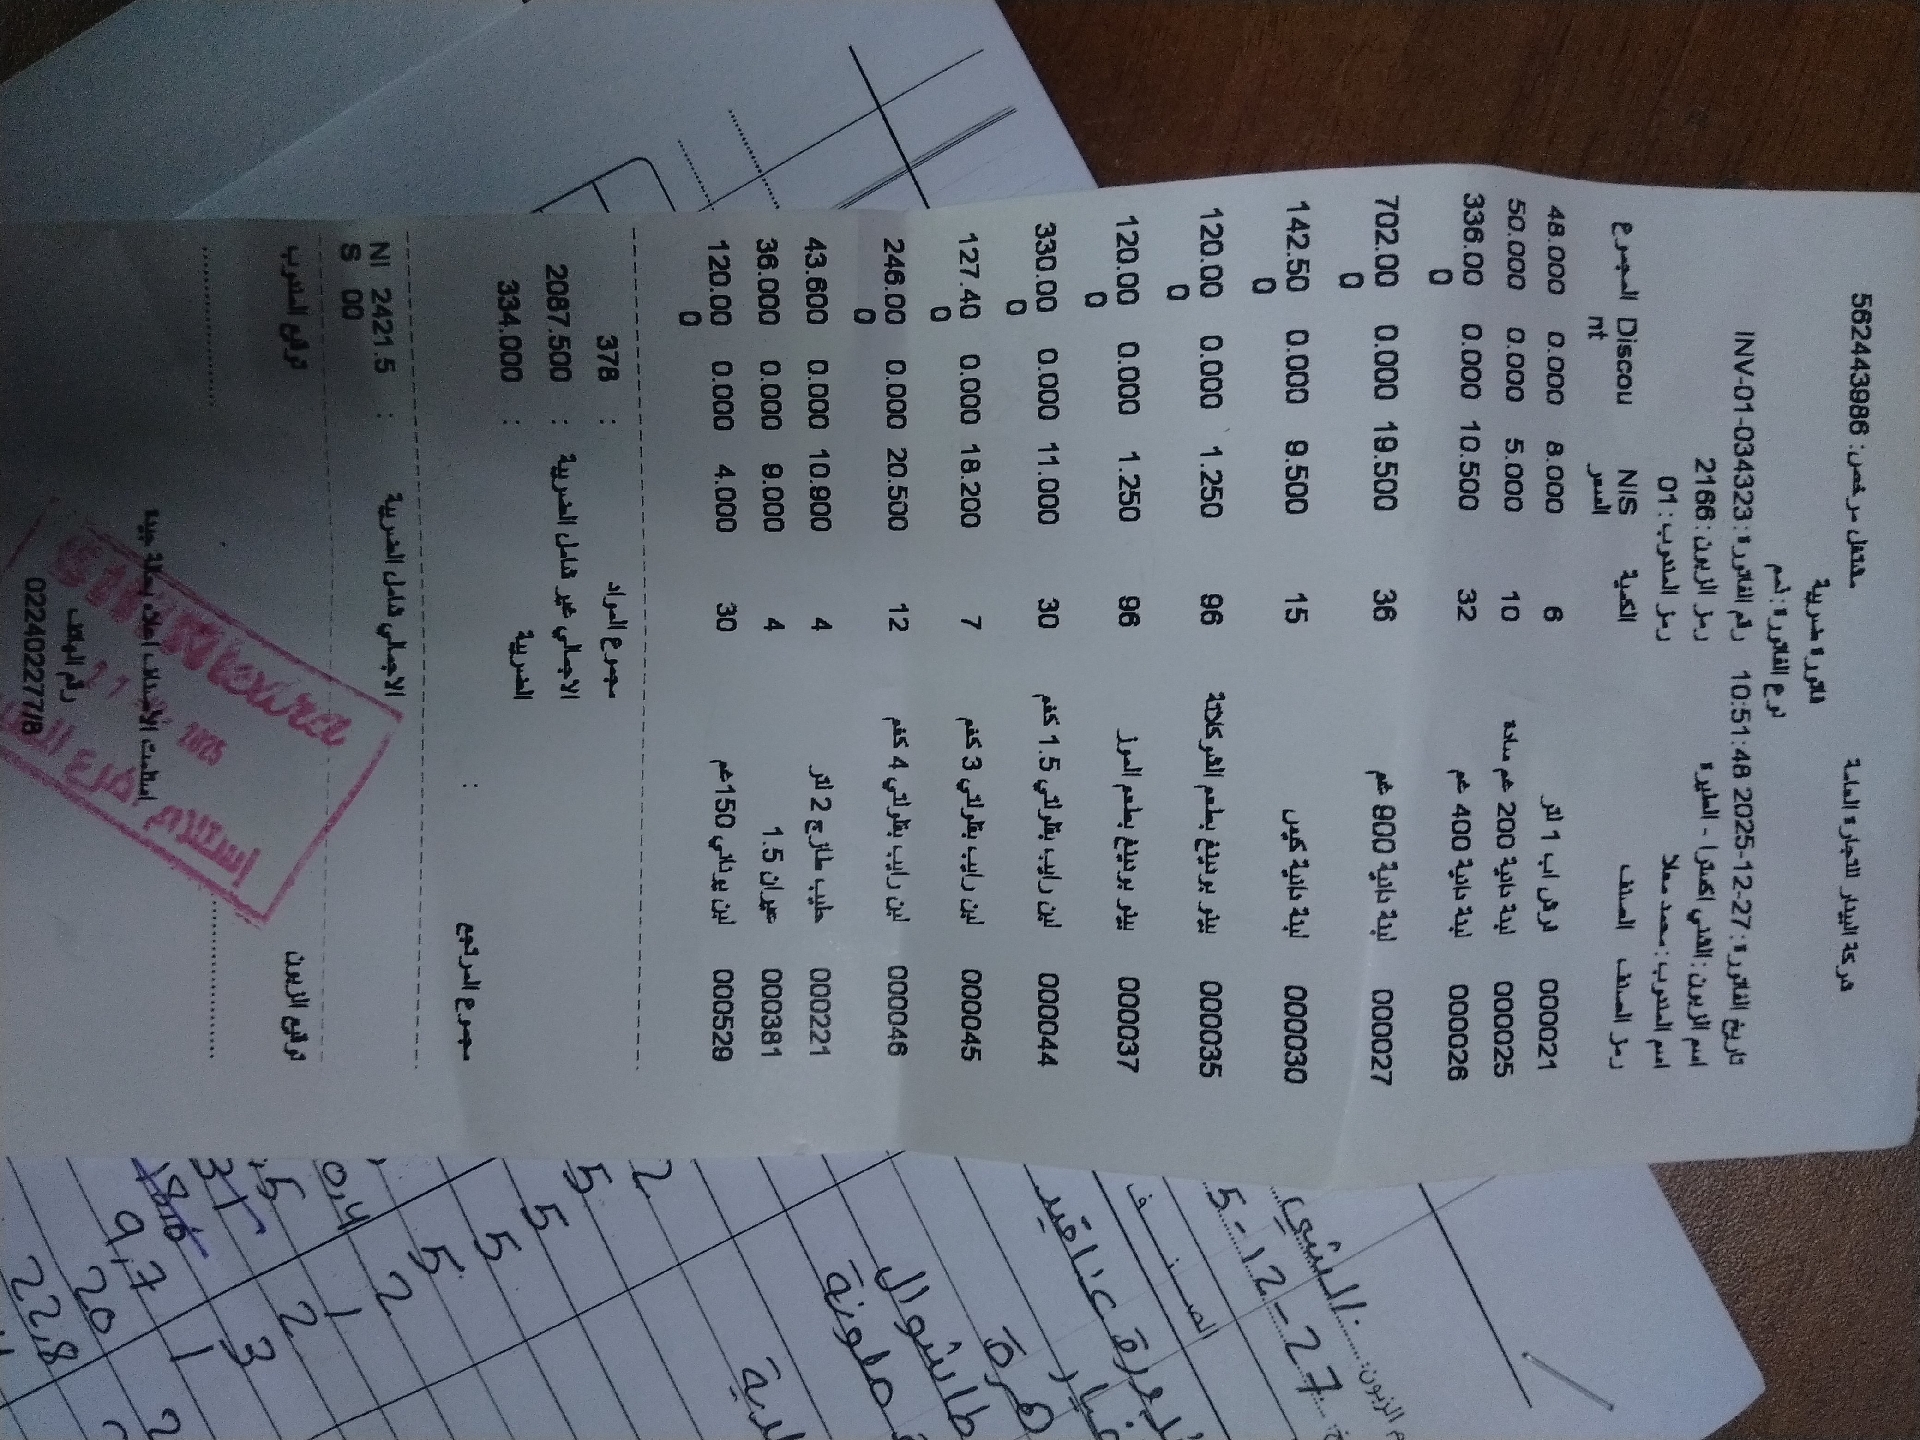 شركة البيدار للتجارة العامة
مشتغل مرخص: 562443986
فاتورة ضريبية
نوع الفاتورة: ذمم
تاريخ الفاتورة: 27-12-2025 10:51:48 رقم الفاتورة: INV-01-034323
اسم الزبون: الشني اكسترا - الطيره رمز الزبون: 2166
اسم المندوب: محمد معلا رمز المندوب: 01
رمز الصنف الصنف الكمية السعر NIS Discount المجموع
000021 لرش اب 1 لتر 6 8.000 0.000 48.000
000025 لبنة دانية 200 غم سادة 10 5.000 0.000 50.000
000026 لبنة دانية 400 غم 32 10.500 0.000 336.000
000027 لبنة دانية 900 غم 36 19.500 0.000 702.000
000030 لبنة دانية كيس 15 9.500 0.000 142.500
000035 بيتو بودينغ بطعم الشوكلاتة 96 1.250 0.000 120.000
000037 بيتو بودينغ بطعم الموز 96 1.250 0.000 120.000
000044 لبن رايب بقولتي 1.5 كغم 30 11.000 0.000 330.000
000045 لبن رايب بقولتي 3 كغم 7 18.200 0.000 127.400
000046 لبن رايب بقولتي 4 كغم 12 20.500 0.000 246.000
000221 حليب طازج 2 لتر 4 10.900 0.000 43.600
000381 عيران 1.5 4 9.000 0.000 36.000
000529 لبن يوناني 150غم 30 4.000 0.000 120.000
مجموع المواد : 378
الاجمالي غير شامل الضريبة : 2087.500
الضريبة : 334.000
مجموع المرتجع :
الاجمالي شامل الضريبة : NIS 2421.500
توقيع الزبون توقيع المندوب
استلمت الأصناف أعلاه بحالة جيدة
رقم الهاتف
022402277/8
استلام
2025
الشني
5-12-27
الصنف